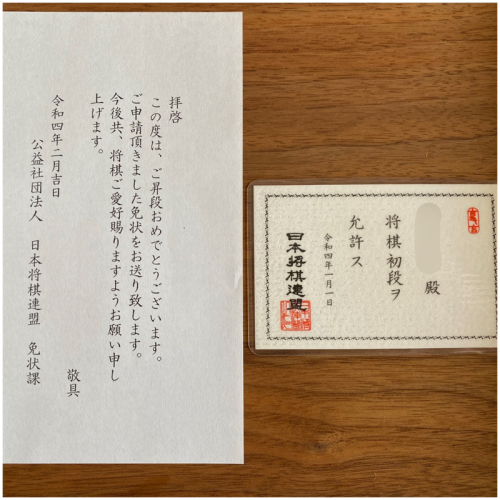 拝啓
この度は、ご昇段おめでとうございます。
ご申請頂きました免状をお送り致します。
今後共、将棋ご愛好賜りますようお願い申し
上げます。
敬具
令和四年二月吉日
公益社団法人 日本将棋連盟 免状課
殿
将棋初段ヲ
允許ス
令和四年一月一日
日本将棋連盟